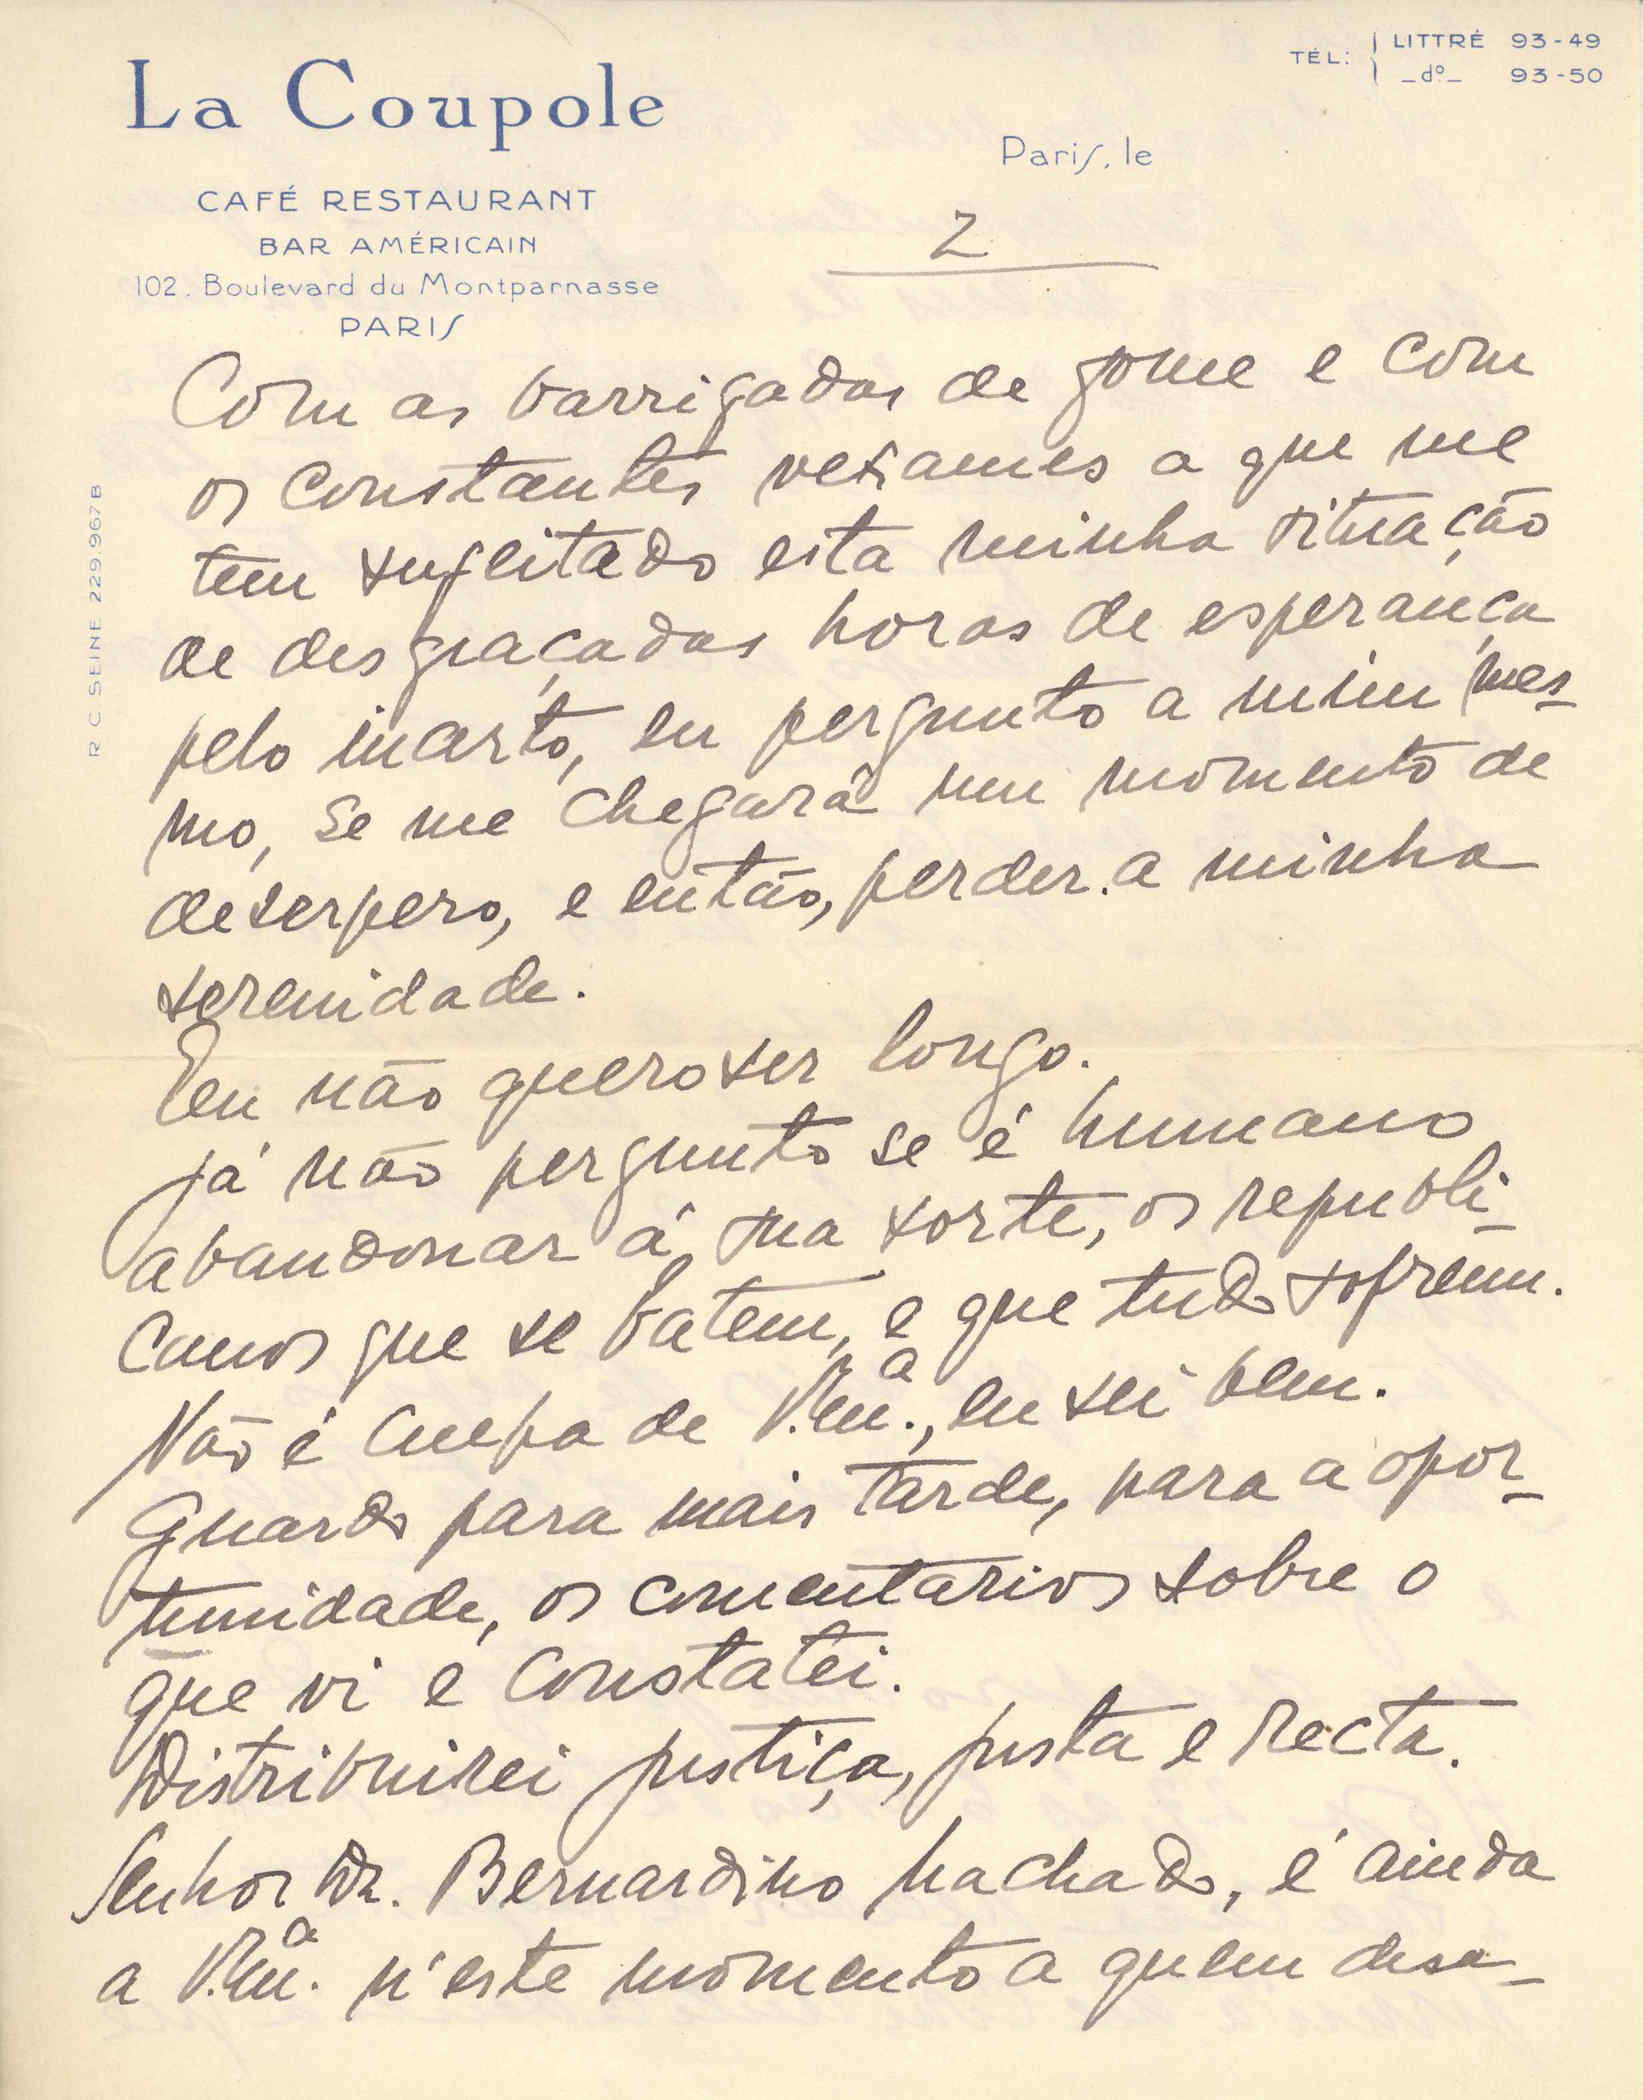 La Coupole
CAFÉ RESTAURANT
BAR AMÉRICAIN
102. Boulevard du Montparnasse
PARIS
TÉL: LITTRÉ 93-49
-dº- 93-50
Paris, le
R. C. SEINE 229.967 B
2
Com as barrigadas de fome e com
os constantes vexames a que me
tem sugeitado esta minha situação
de desgraçadas horas de esperança
pelo incerto, eu pergunto a mim mes-
mo, se me chegará um momento de
desespero, e então, perder a minha
serenidade.
Eu não quero ser longo.
Já não pergunto se é humano
abandonar á sua sorte, os republi-
canos que se batem, e que tudo sofrem.
Não é culpa de V. Ex.ª, eu sei bem.
Guardo para mais tarde, para a opor-
tunidade, os comentarios sobre o
que vi e constatei.
Distribuirei justiça, justa e recta.
Senhor Dr. Bernardino Machado, é ainda
a V. Ex.ª n'este momento a quem desa-